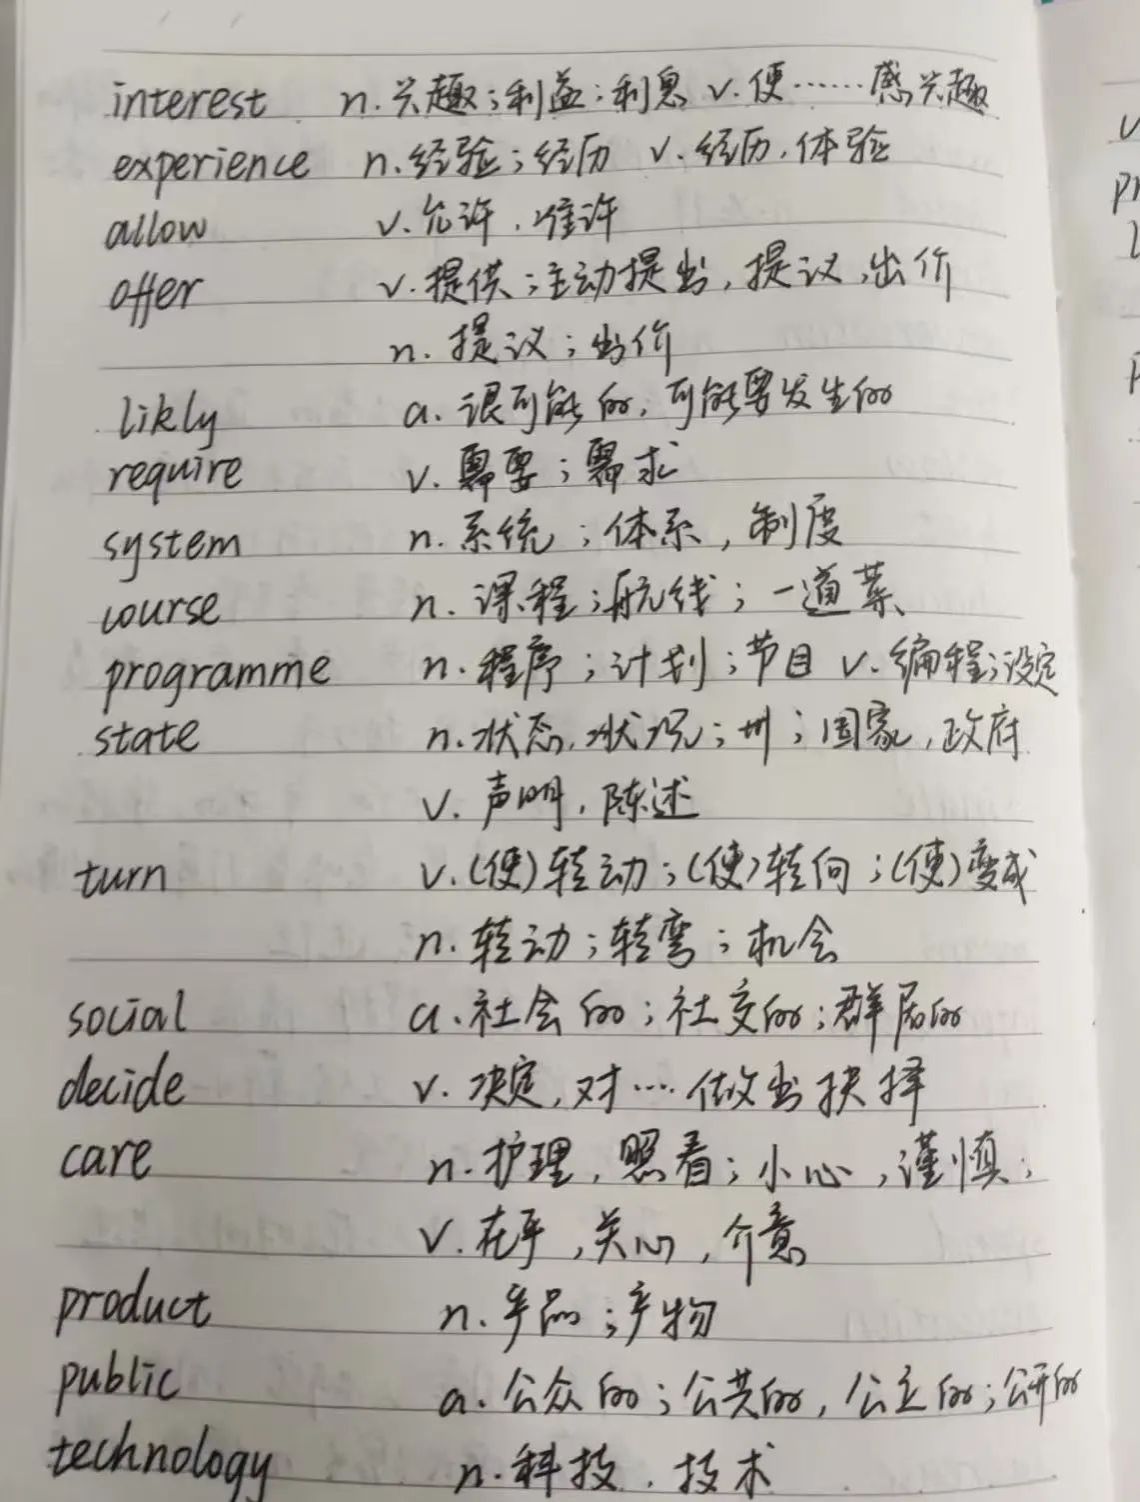 interest n. 兴趣；利益；利息 v. 使……感兴趣
experience n. 经验；经历 v. 经历，体验
allow v. 允许，准许
offer v. 提供；主动提出，提议，出价
n. 提议；出价
likly a. 很可能的，可能要发生的
require v. 需要；需求
system n. 系统；体系，制度
course n. 课程；航线；一道菜
programme n. 程序；计划；节目 v. 编程；设定
state n. 状态，状况；州；国家，政府
v. 声明，陈述
turn v. (使)转动；(使)转向；(使)变成
n. 转动；转弯；机会
social a. 社会的；社交的；群居的
decide v. 决定，对…做出抉择
care n. 护理，照看；小心，谨慎；
v. 在乎，关心，介意
product n. 产品；产物
public a. 公众的；公共的，公立的；公开的
technology n. 科技，技术